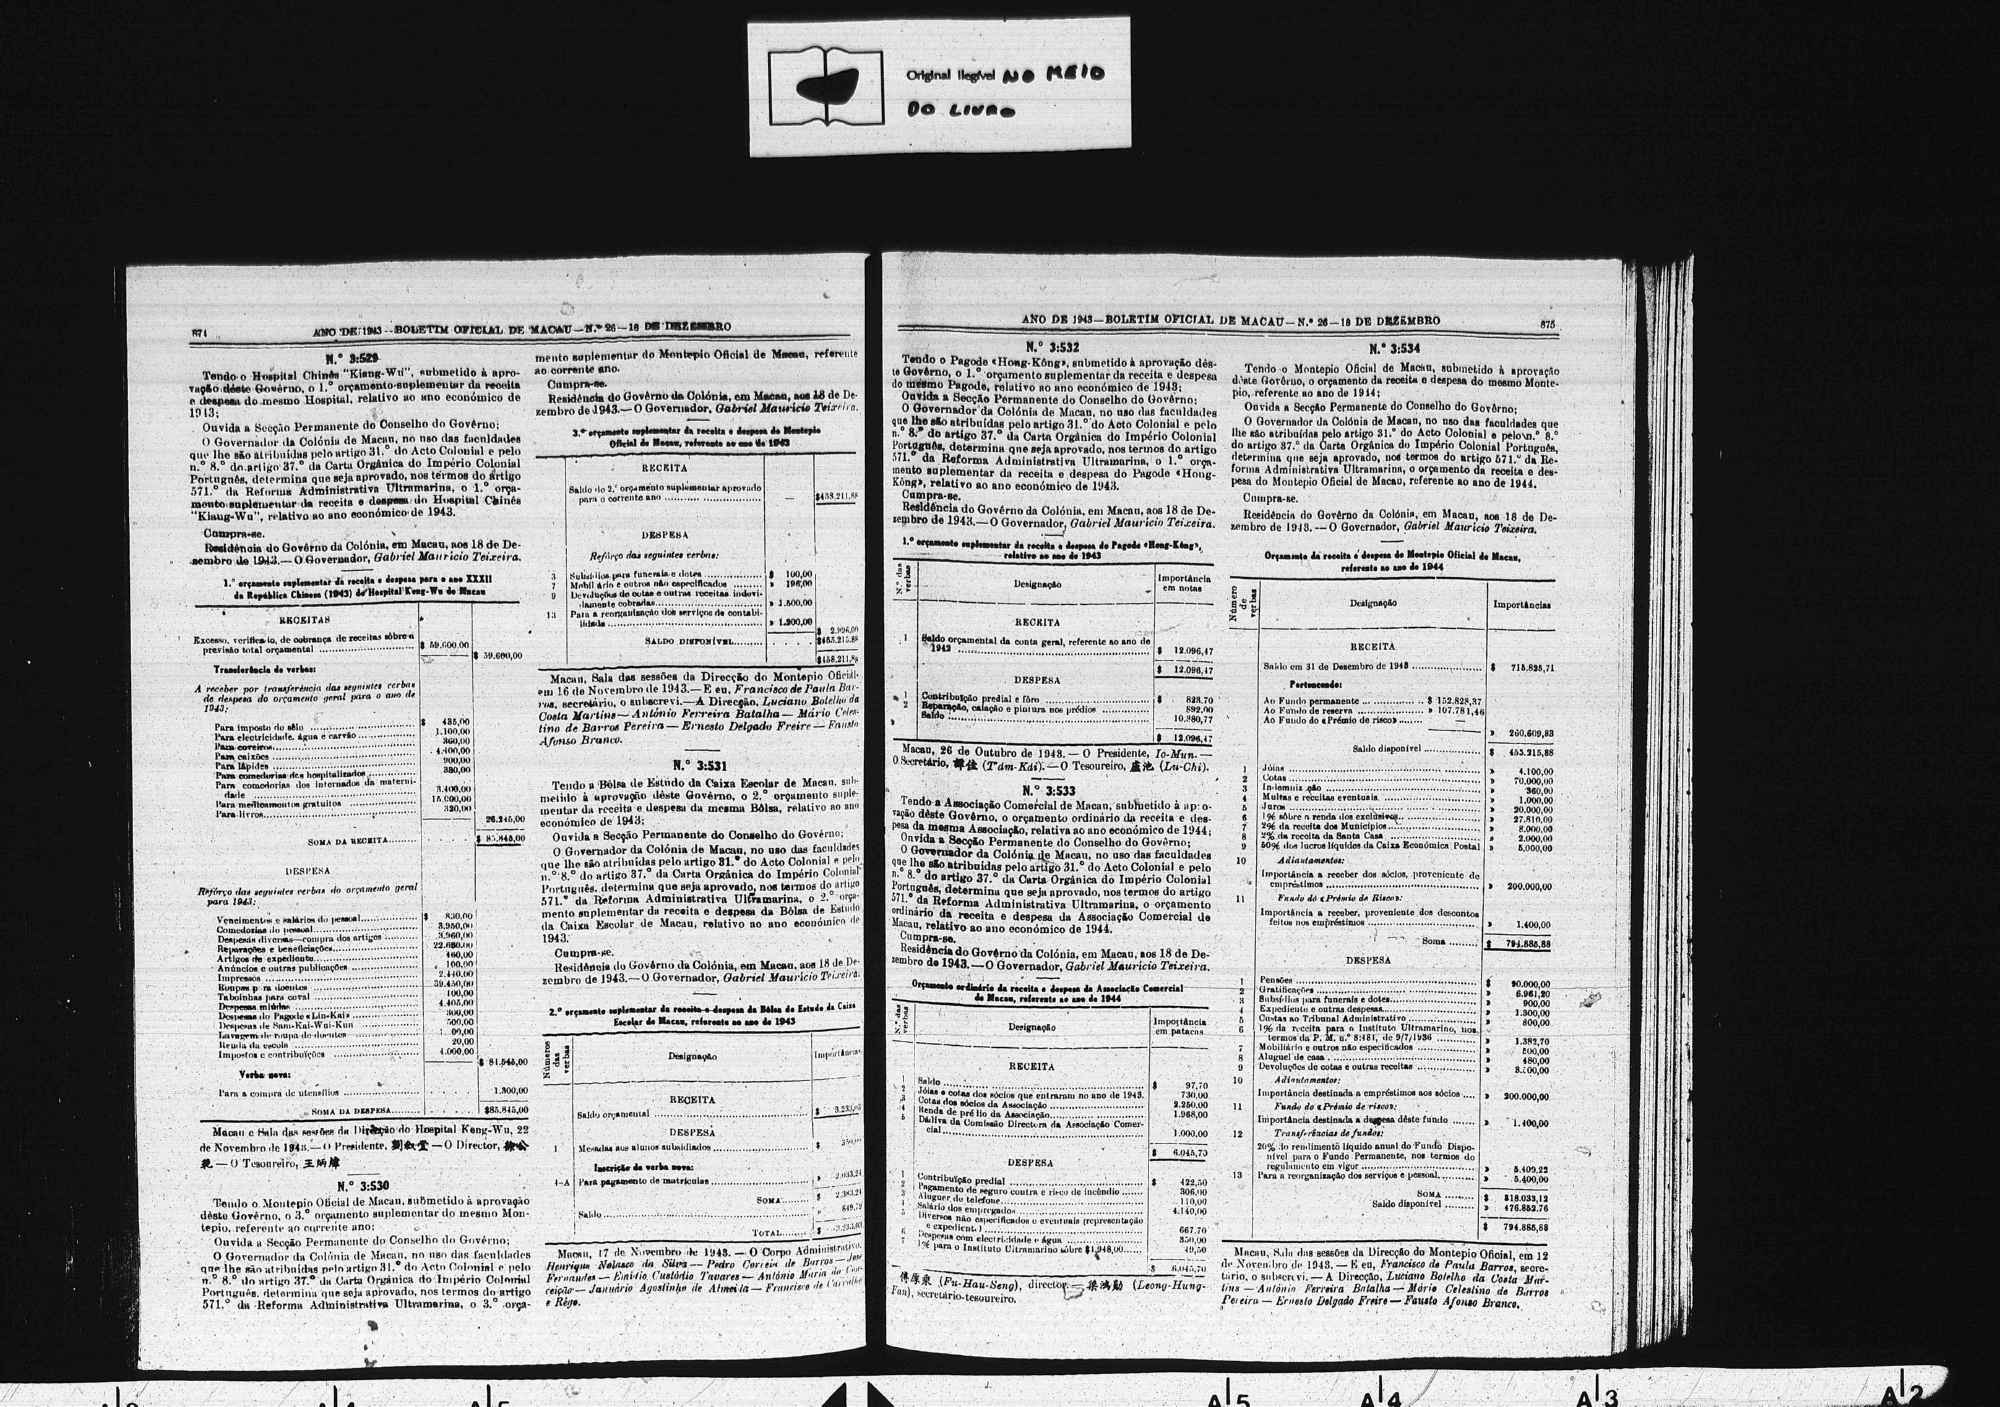 Original Ilegível NO MEIO
DO LIVRO
874
ANO DE 1943—BOLETIM OFICIAL DE MACAU—N.º 26—18 DE DEZEMBRO
N.º 3:529
Tendo o Hospital Chinês "Kiang-Wu", submetido à apro-
vação dêste Govêrno, o 1.º orçamento suplementar da receita
e despesa do mesmo Hospital, relativo ao ano económico de
1943;
Ouvida a Secção Permanente do Conselho do Govêrno;
O Governador da Colónia de Macau, no uso das faculdades
que lhe são atribuídas pelo artigo 31.º do Acto Colonial e pelo
n.º 8.º do artigo 37.º da Carta Orgânica do Império Colonial
Português, determina que seja aprovado, nos têrmos do artigo
571.º da Reforma Administrativa Ultramarina, o 1.º orça-
mento suplementar da receita e despesa do Hospital Chinês
"Kiang-Wu", relativo ao ano económico de 1943.
Cumpra-se.
Residência do Govêrno da Colónia, em Macau, aos 18 de De-
zembro de 1943.—O Governador, Gabriel Maurício Teixeira.
1.º orçamento suplementar da receita e despesa para o ano XXXII
da República Chinesa (1943) do Hospital Keng-Wu de Macau
RECEITAS
Excesso, verificado, de cobrança de receitas sôbre a
previsão total orçamental $ 59.600,00
$ 59.600,00
Transferência de verbas:
A receber por transferência das seguintes verbas
de despesa do orçamento geral para o ano de
1943:
Para imposto do sêlo $ 435,00
Para electricidade, água e carvão 1.100,00
Para coveiros 360,00
Para caixões 4.400,00
Para lápides 900,00
Para comedorias dos hospitalizados 330,00
Para comedorias dos internados da materni-
dade 3.400,00
Para medicamentos gratuitos 15.000,00
Para livros 320,00
26.245,00
SOMA DA RECEITA $ 85.845,00
DESPESA
Refôrço das seguintes verbas do orçamento geral
para 1943:
Vencimentos e salários do pessoal $ 830,00
Comedorias do pessoal 3.950,00
Despesas diversas—compra dos artigos 3.960,00
Reparações e beneficiações 22.680,00
Artigos de expediente 460,00
Anúncios e outras publicações 100,00
Impressos 2.440,00
Roupas para doentes 39.450,00
Taboinhas para coval 100,00
Despesas miúdas 4.405,00
Despesas do Pagode «Lin-Kai» 300,00
Despesas de Sam-Kai-Wui-Kun 500,00
Lavagem de roupa de doentes
Renda da escola 20,00
Impostos e contribuïções 4.000,00
$ 84.545,00
Verba nova:
Para a compra de utensílios 1.300,00
SOMA DA DESPESA $85.845,00
Macau e Sala das sessões da Direcção do Hospital Keng-Wu, 22
de Novembro de 1943.—O Presidente, 劉叙堂—O Director, 徐公
—O Tesoureiro, 王炳輝
N.º 3:530
Tendo o Montepio Oficial de Macau, submetido à aprovação
dêste Govêrno, o 3.º orçamento suplementar do mesmo Mon-
tepio, referente ao corrente ano;
Ouvida a Secção Permanente do Conselho do Govêrno;
O Governador da Colónia de Macau, no uso das faculdades
que lhe são atribuídas pelo artigo 31.º do Acto Colonial e pelo
n.º 8.º do artigo 37.º da Carta Orgânica do Império Colonial
Português, determina que seja aprovado, nos têrmos do artigo
571.º da Reforma Administrativa Ultramarina, o 3.º orça-
mento suplementar do Montepio Oficial de Macau, referente
ao corrente ano.
Cumpra-se.
Residência do Govêrno da Colónia, em Macau, aos 18 de De-
zembro de 1943.—O Governador, Gabriel Maurício Teixeira.
3.º orçamento suplementar da receita e despesa do Montepio
Oficial de Macau, referente ao ano de 1943
RECEITA
Saldo do 2.º orçamento suplementar aprovado
para o corrente ano — $458.211,88
DESPESA
Refôrço das seguintes verbas:
3 Subsídios para funerais e dotes $ 100,00
7 Mobiliário e outros não especificados » 196,00
9 Devoluções de cotas e outras receitas indevi-
damente cobradas » 1.500,00
13 Para a reorganização dos serviços de contabi-
lidade » 1.200,00
$ 2.996,00
SALDO DISPONÍVEL $455.215,88
$458.211,88
Macau, Sala das sessões da Direcção do Montepio Oficial,
em 16 de Novembro de 1943.—E eu, Francisco de Paula Bar-
ros, secretário, o subscrevi.—A Direcção, Luciano Botelho da
Costa Martins—António Ferreira Batalha—Mário Celes-
tino de Barros Pereira—Ernesto Delgado Freire—Fausto
Afonso Branco.
N.º 3:531
Tendo a Bôlsa de Estudo da Caixa Escolar de Macau, sub-
metido à aprovação dêste Govêrno, o 2.º orçamento suple-
mentar da receita e despesa da mesma Bôlsa, relativo ao ano
económico de 1943;
Ouvida a Secção Permanente do Conselho do Govêrno;
O Governador da Colónia de Macau, no uso das faculdades
que lhe são atribuídas pelo artigo 31.º do Acto Colonial e pelo
n.º 8.º do artigo 37.º da Carta Orgânica do Império Colonial
Português, determina que seja aprovado, nos termos do artigo
571.º da Reforma Administrativa Ultramarina, o 2.º orça-
mento suplementar da receita e despesa da Bôlsa de Estudo
da Caixa Escolar de Macau, relativo ao ano económico de
1943.
Cumpra-se.
Residência do Govêrno da Colónia, em Macau, aos 18 de De-
zembro de 1943.—O Governador, Gabriel Maurício Teixeira.
2.º orçamento suplementar da receita e despesa da Bôlsa de Estudo da Caixa
Escolar de Macau, referente ao ano de 1943
Números das verbas Designação Importâncias
RECEITA
Saldo orçamental $
DESPESA
1 Mesadas aos alunos subsidiados $
Inscrição da verba nova:
1-A Para pagamento de matrículas » 2.033,24
SOMA $ 2.383,24
Saldo » 849,79
TOTAL $
Macau, 17 de Novembro de 1943.—O Corpo Administrativo,
Henrique Nolasco da Silva—Pedro Correia de Barros—José
Fernandes—Emídio Custódio Tavares—António Maria da Con-
ceição—Januário Agostinho de Almeida—Francisco de Carvalho
e Rêgo.
ANO DE 1943—BOLETIM OFICIAL DE MACAU—N.º 26—18 DE DEZEMBRO
875
N.º 3:532
Tendo o Pagode «Hong-Kông», submetido à aprovação dês-
te Govêrno, o 1.º orçamento suplementar da receita e despesa
do mesmo Pagode, relativo ao ano económico de 1943;
Ouvida a Secção Permanente do Conselho do Govêrno;
O Governador da Colónia de Macau, no uso das faculdades
que lhe são atribuídas pelo artigo 31.º do Acto Colonial e pelo
n.º 8.º do artigo 37.º da Carta Orgânica do Império Colonial
Português, determina que seja aprovado, nos termos do artigo
571.º da Reforma Administrativa Ultramarina, o 1.º orça-
mento suplementar da receita e despesa do Pagode «Hong-
Kông», relativo ao ano económico de 1943.
Cumpra-se.
Residência do Govêrno da Colónia, em Macau, aos 18 de De-
zembro de 1943.—O Governador, Gabriel Maurício Teixeira.
1.º orçamento suplementar da receita e despesa do Pagode «Hong-Kông»,
relativo ao ano de 1943
N.º das verbas Designação Importância em notas
RECEITA
1 Saldo orçamental da conta geral, referente ao ano de
1942 $ 12.096,47
$ 12.096,47
DESPESA
1 Contribuïção predial e fôro $ 823,70
2 Reparação, caiação e pintura nos prédios 892,00
Saldo 10.380,77
$ 12.096,47
Macau, 26 de Outubro de 1943.—O Presidente, Io-Mun.—
O Secretário, 譚佳 (T'ám-Kái).—O Tesoureiro, 盧池 (Lu-Chi).
N.º 3:533
Tendo a Associação Comercial de Macau, submetido à apro-
vação dêste Govêrno, o orçamento ordinário da receita e des-
pesa da mesma Associação, relativa ao ano económico de 1944;
Ouvida a Secção Permanente do Conselho do Govêrno;
O Governador da Colónia de Macau, no uso das faculdades
que lhe são atribuídas pelo artigo 31.º do Acto Colonial e pelo
n.º 8.º do artigo 37.º da Carta Orgânica do Império Colonial
Português, determina que seja aprovado, nos termos do artigo
571.º da Reforma Administrativa Ultramarina, o orçamento
ordinário da receita e despesa da Associação Comercial de
Macau, relativo ao ano económico de 1944.
Cumpra-se.
Residência do Govêrno da Colónia, em Macau, aos 18 de De-
zembro de 1943.—O Governador, Gabriel Maurício Teixeira.
Orçamento ordinário da receita e despesa da Associação Comercial
de Macau, referente ao ano de 1944
N.º das verbas Designação Importância em patacas
RECEITA
1 Saldo $ 97,70
2 Jóias e cotas dos sócios que entraram no ano de 1943. 730,00
3 Cotas dos sócios da Associação 2.250,00
4 Renda de prédio da Associação 1.968,00
5 Dádiva da Comissão Directora da Associação Comer-
cial 1.000,00
$ 6.045,70
DESPESA
1 Contribuïção predial $ 422,50
2 Pagamento de seguro contra o risco de incêndio 306,00
3 Aluguer do telefone 110,00
4 Salário dos empregados 4.140,00
5 Diversos não especificados e eventuais (representação
e expediente) 667,70
6 Despesas com electricidade e água 350,00
7 1% para o Instituto Ultramarino sôbre $1,948,00 49,50
$ 6.045,70
傅厚泉 (Fu-Hau-Seng), director.—梁鴻勛 (Leong-Hung-
Fan), secretário-tesoureiro.
N.º 3:534
Tendo o Montepio Oficial de Macau, submetido à aprovação
dêste Govêrno, o orçamento da receita e despesa do mesmo Monte-
pio, referente ao ano de 1944;
Ouvida a Secção Permanente do Conselho do Govêrno;
O Governador da Colónia de Macau, no uso das faculdades que
lhe são atribuídas pelo artigo 31.º do Acto Colonial e pelo n.º 8.º
do artigo 37.º da Carta Orgânica do Império Colonial Português,
determina que seja aprovado, nos termos do artigo 571.º da Re-
forma Administrativa Ultramarina, o orçamento da receita e des-
pesa do Montepio Oficial de Macau, referente ao ano de 1944.
Cumpra-se.
Residência do Govêrno da Colónia, em Macau, aos 18 de De-
zembro de 1943.—O Governador, Gabriel Maurício Teixeira.
Orçamento da receita e despesa do Montepio Oficial de Macau,
referente ao ano de 1944
Número de verbas Designação Importâncias
RECEITA
Saldo em 31 de Dezembro de 1943 $ 715.825,71
Pertencendo:
Ao Fundo permanente $ 152.828,37
Ao Fundo de reserva » 107.781,46
Ao Fundo do «Prémio de risco» —
» 260.609,83
Saldo disponível $ 455.215,88
1 Jóias » 4.100,00
2 Cotas » 70.000,00
3 Indemnização » 360,00
4 Multas e receitas eventuais » 1.000,00
5 Juros » 20.000,00
6 1% sôbre a renda dos exclusivos » 27.810,00
7 2% da receita dos Municípios » 8.000,00
8 2% da receita da Santa Casa » 2.000,00
9 50% dos lucros líquidos da Caixa Económica Postal » 5.000,00
10 Adiantamentos:
Importância a receber dos sócios, proveniente de
empréstimos » 200.000,00
11 Fundo do «Prémio de Risco»:
Importância a receber, proveniente dos descontos
feitos nos empréstimos » 1.400,00
Soma $ 794.885,88
DESPESA
1 Pensões $ 90.000,00
2 Gratificações » 6.961,20
3 Subsídios para funerais e dotes » 900,00
4 Expediente e outras despesas » 1.300,00
5 Custas ao Tribunal Administrativo » 800,00
6 1% da receita para o Instituto Ultramarino, nos
termos da P. M. n.º 8:481, de 9/7/1936 » 1.382,70
7 Mobiliário e outros não especificados » 500,00
8 Aluguel de casa » 480,00
9 Devoluções de cotas e outras receitas »
10 Adiantamentos:
Importância destinada a empréstimos aos sócios » 200.000,00
11 Fundo do «Prémio de risco»:
Importância destinada a despesa dêste fundo » 1.400,00
12 Transferências de fundos:
20% do rendimento líquido anual do Fundo Dispo-
nível para o Fundo Permanente, nos termos do
regulamento em vigor » 5.409,22
13 Para a reorganização dos serviços e pessoal » 5.400,00
SOMA $ 318.033,12
Saldo disponível » 476.852,76
$ 794.885,88
Macau, Sala das sessões da Direcção do Montepio Oficial, em 12
de Novembro de 1943.—E eu, Francisco de Paula Barros, secre-
tário, o subscrevi.—A Direcção, Luciano Botelho da Costa Mar-
tins—António Ferreira Batalha—Mário Celestino de Barros
Pereira—Ernesto Delgado Freire—Fausto Afonso Branco.
A5 A4 A3 A2